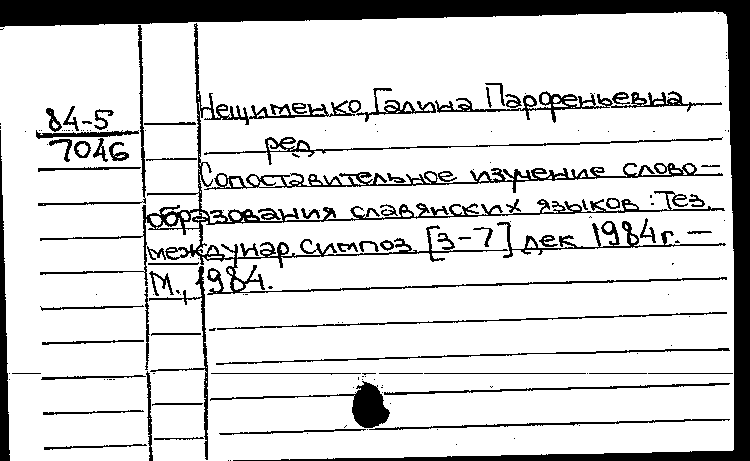 84-5
7046
Нещименко, Галина Парфеньевна,
ред.
Сопоставительное изучение слово-
образования славянских языков: Тез.
междунар. симпоз. [3-7] дек. 1984 г. —
М., 1984.